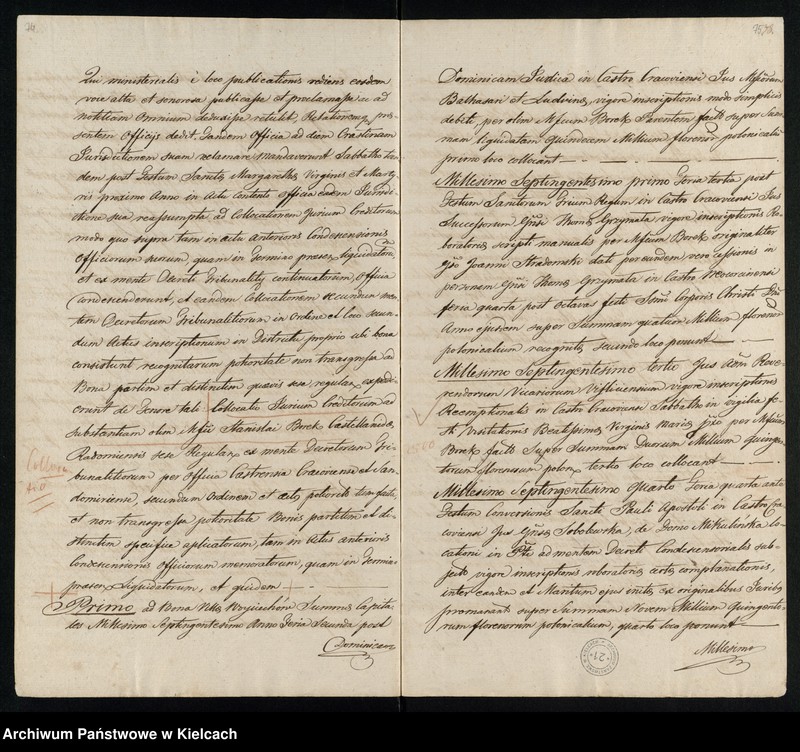 Qui ministerialis è loco publicationis rediens eosdem
voce alta et sonorosa publicasse et proclamasse ac ad
notitiam omnium deduxisse retulit Relationemq prae-
sentem Officijs dedit. Tandem Officia ad diem Crastinam
Jurisdictionem suam reclamare mandaverunt Sabbatho tan-
dem post Festum Sanctae Margarethae Virginis et Marty-
ris proximo Anno in Actu contento officia eadem Jurisdi-
ctione sua reassumpta ad Collocationem Jurium Creditorum
modo quo supra tam in actu anterioris Condescensionis
officiorum suorum, quam in Termino praesenti liquidatorum
et ex mente Decreti Tribunalitij continuatorum, officia
Condescenderunt, et eandem Collocationem secundum men-
tem Decretorum Tribunalitiorum in Ordine et loco secun-
dum Actus inscriptionum in Districtu proprio ubi bona
consistunt recognitarum potioritate non transgressa ad
Bona partim et distinctim quaevis sese regulan expedi-
erunt de Tenore tali Collocatio Jurium Creditorum ad
substantiam olim Mfici Stanislai Borek Castellanidae
Radomiensis sese Regulan ex mente Decretorum Tri-
bunalitiorum per Officia Castrensia Cracoviense et San-
domiriense, secundum Ordinem et potioritatem facta,
et non transgressa potioritate Bonis partitim et di-
stinctim specifice aplicatorum, tam in Actus anterioris
Condescensionis Officiorum memoratorum, quam in Termino
praesen Liquidatorum, et quidem
Primo ad Bona Villae Summas Capita-
les Millesimo Septingentesimo Anno Feria Secunda post
Dominicam
Colloca
tio
Dominicam Judica in Castro Cracoviensi Jus Mficorum
Balthasari et Ludvinae vigore inscriptionis modo simplicis
debiti, per olim Mficum Borek Parentem facti super Sum-
mam liquidatam Quindecem Millium florenor polonicaliu
primo loco collocant
Millesimo Septingentesimo primo Feria tertia post
Festum Sanctorum Trium Regum in Castro Cracoviensi Jus
Successorum Gnsi Thomae Grzymala vigore inscriptionis Ro-
borationis scripti manualis per Mficum Borek originaliter
Gso Joanni Stradomski dati per eundem vero cessionis in
personam Gsi Thomae Grzymala in Castro Novocorcinensi
feria quarta post octavas festi Ssmi Corporis Christi
Anno ejusdem super Summam quatuor Millium florenor
polonicalium recognitae secundo loco ponunt
Millesimo Septingentesimo tertio Jus Adm Reve-
rendorum Vicariorum Visliciensium vigore inscriptionis
Reemptionalis in Castro Cracoviensi Sabbatho in vigilia fe-
sti Visitationis Beatissimae Virginis Mariae pso per Mficum
Borek facti super Summam Duorum Millium Quingen-
torum florenorum polon tertio loco collocant
Millesimo Septingentesimo quarto Feria quarta ante
Festum Conversionis Sancti Pauli Apostoli in Castro Cra-
coviensi Jus Gnsae Sobolewska, de Domo Mikulińska lo-
cationi in Pti ad mentem Decreti Condescensorialis sub-
jecti vigore inscriptionis roborationis certae complanationis,
inter eandem et Maritum ejus initae ex originalibus Juribus
promanans super Summam Novem Millium Quingento-
rum florenorum polonicalium, quarto loco ponunt
Millesimo
21
Archiwum Państwowe w Kielcach